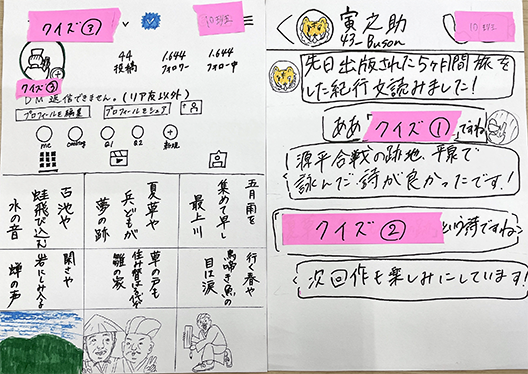 クイズ③
10班
44 1.644 1.644
投稿 フォロワー フォロー中
クイズ③
DM返信できません。(リア友以外)
プロフィールを編集 プロフィールをシェア
me 新規
五月雨を
集めて早し
最上川
夏草や
兵どもが
夢の跡
古池や
蛙飛び込む
水の音
行く春や
鳥啼き魚の
目は涙
草の戸も
住み替はる代ぞ
雛の家
閑さや
岩にしみ入る
蝉の声
寅之助
43_Buson
10班
先日出版された5ヶ月間旅を
した紀行文読みました!
ああ「クイズ①」ですね
源平合戦の跡地、平泉で
詠んだ詩が良かったです!
クイズ②という詩ですね
次回作も楽しみにしています!